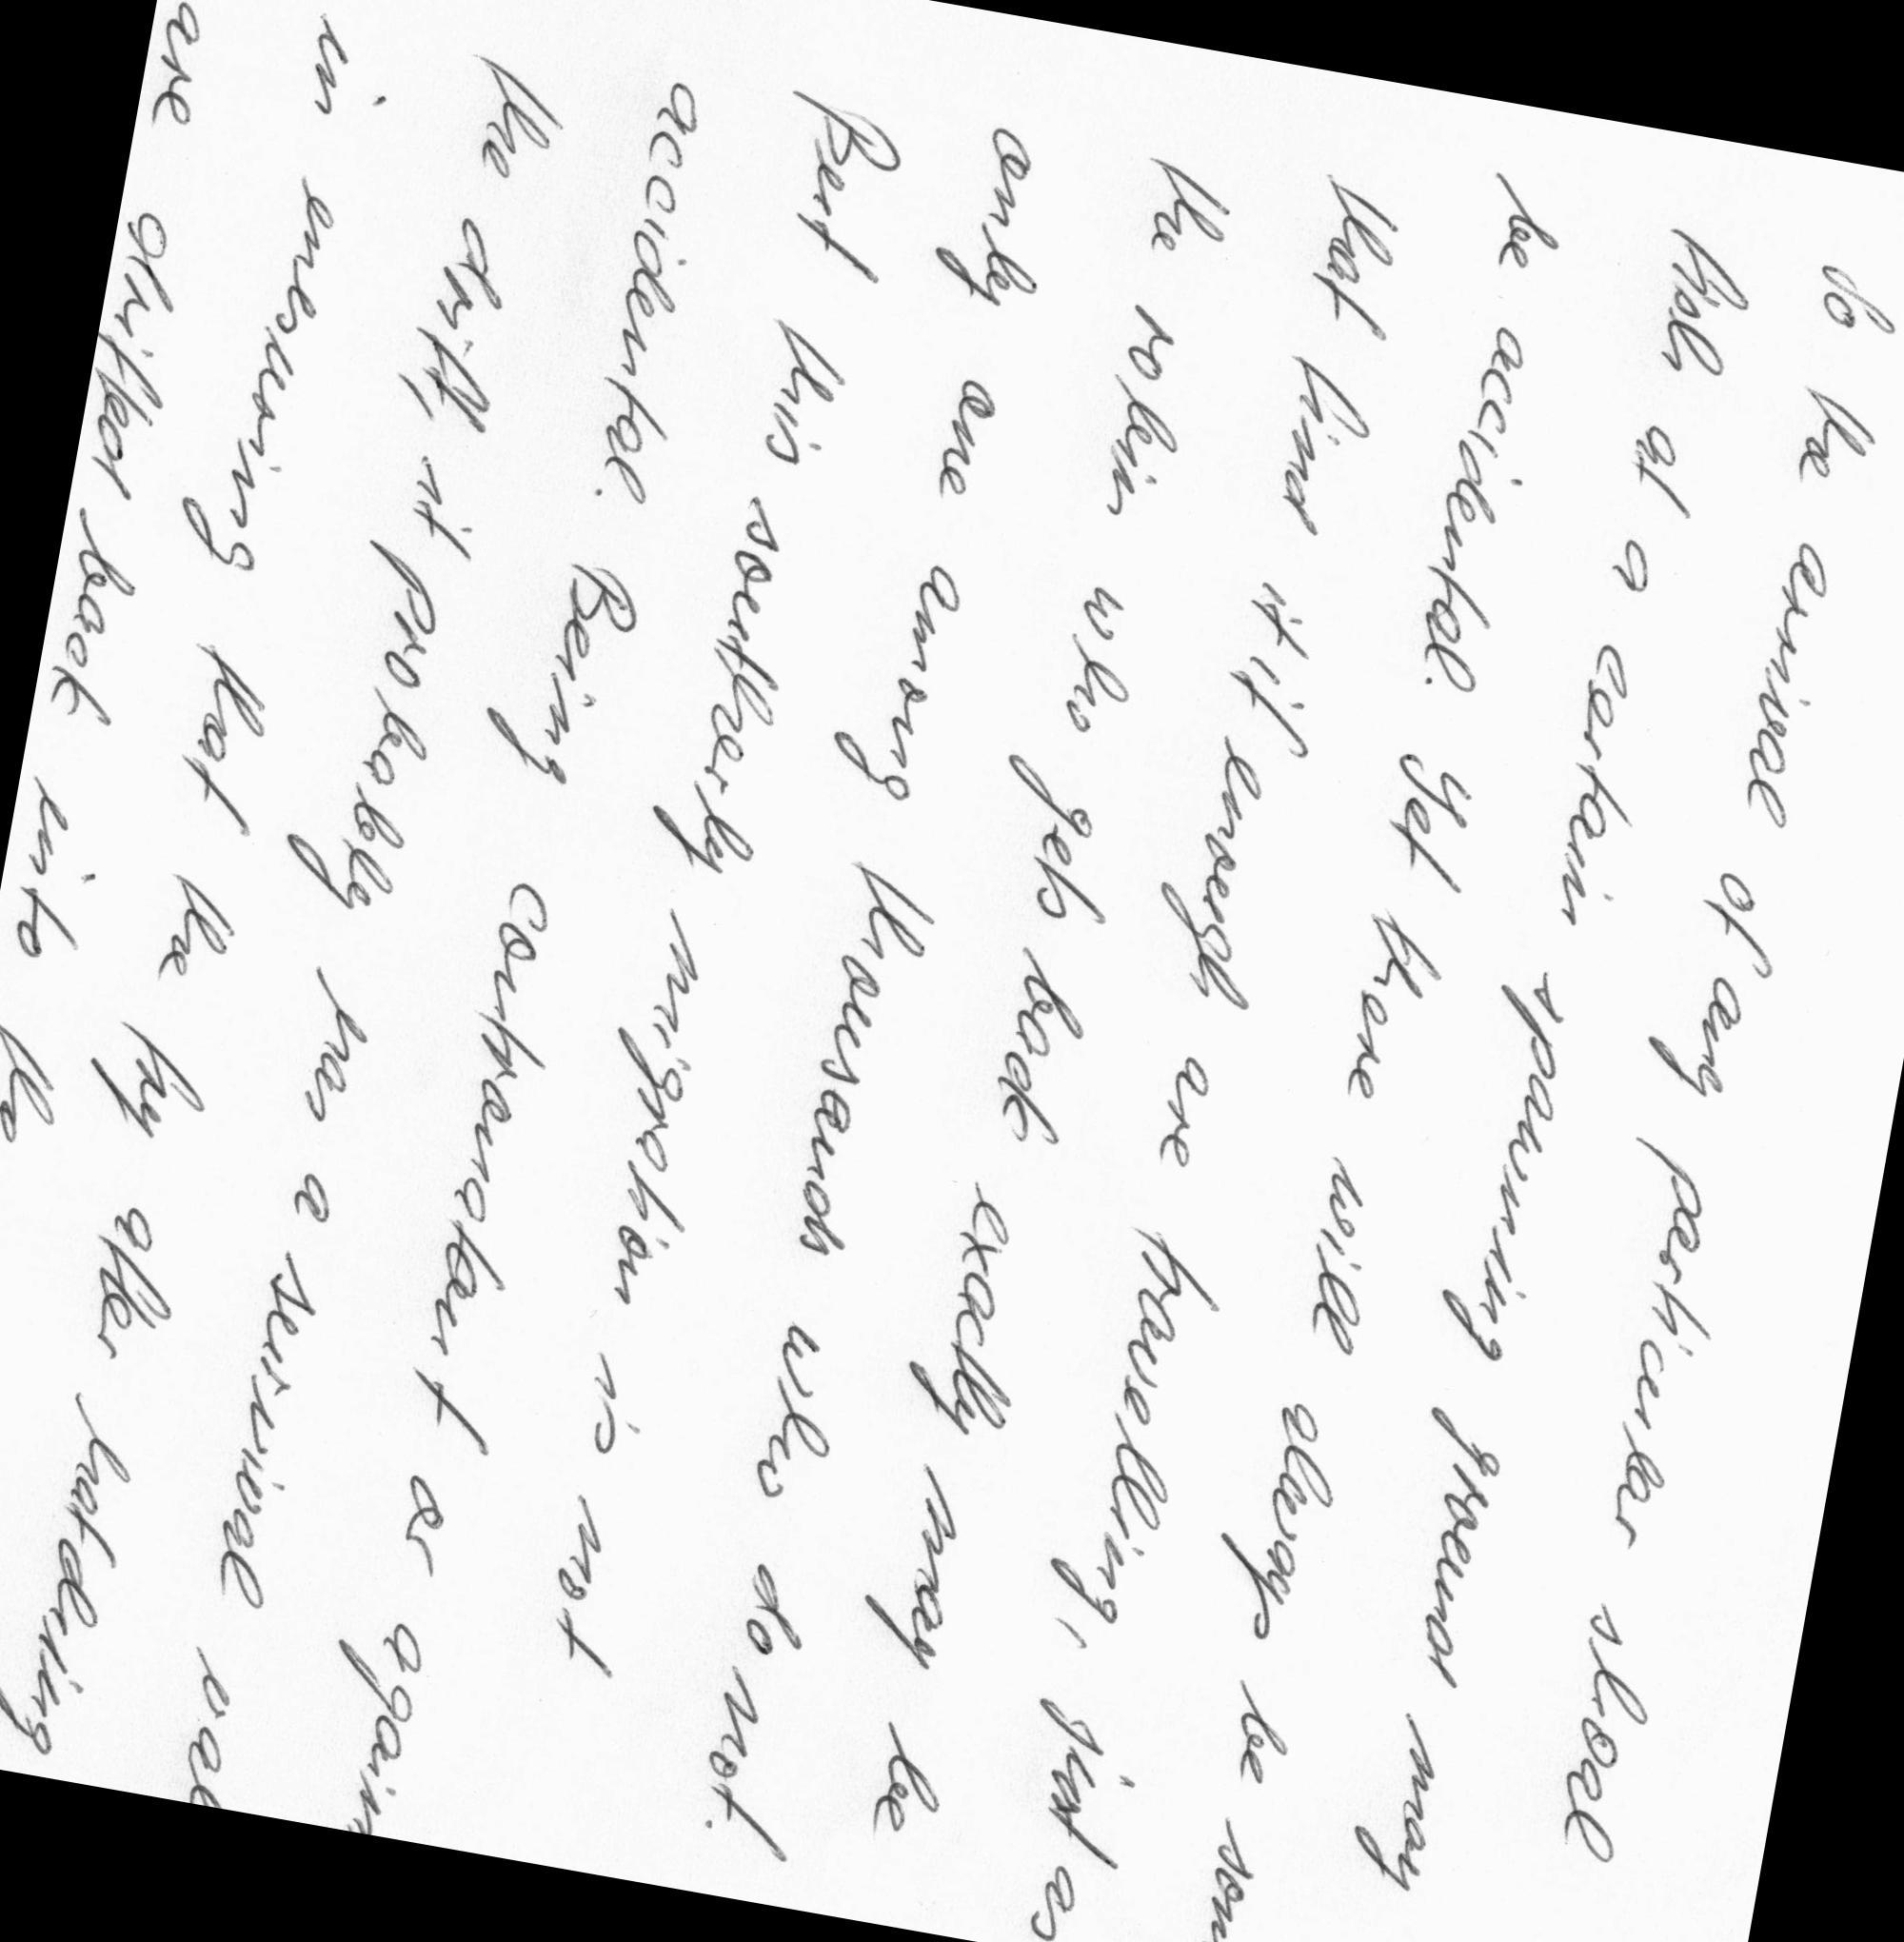 So the arrival of any particular shoal
fish at a certain spawning ground may
be accidental. Yet there will always be som
that find it if enough are travelling, just as
the robin who gets back exactly may be
only one among thousands who do not.
But this southerly migration is not
accidental. Being contranatant or again
the drift, it probably has a survival val
in ensuring that the fry after hatching
are drifted back into